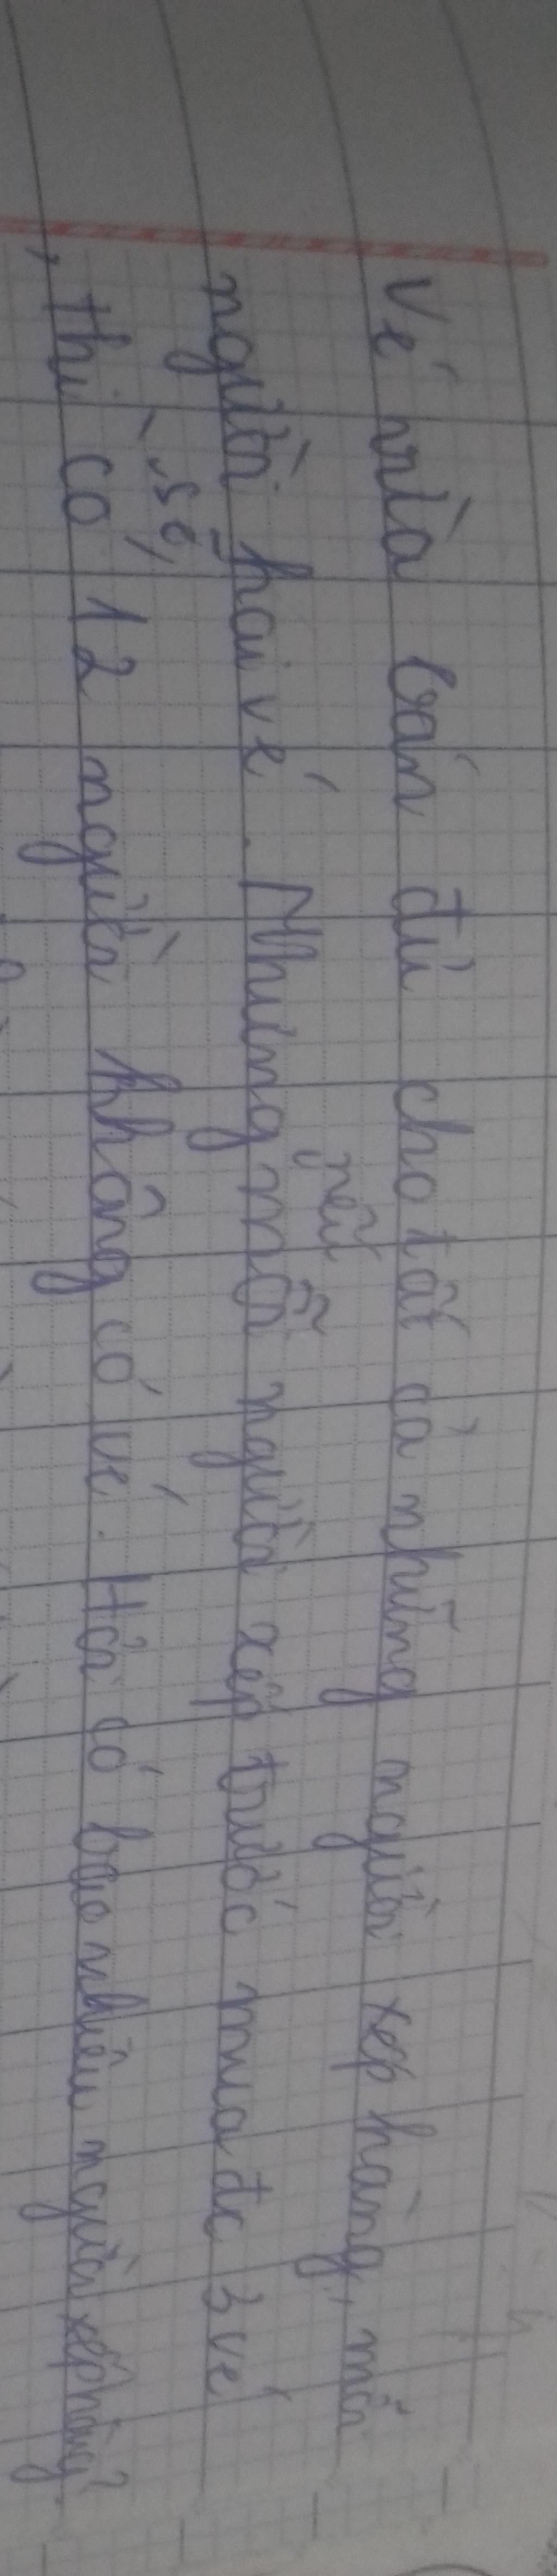 Vé vừa bán đủ cho tất cả những người xếp hàng, mỗi
người hai vé. Nhưng nếu mỗi người xếp trước mua đc 3 vé
, thì sẽ có 12 người không có vé. Hỏi có bao nhiêu người xếp hàng?